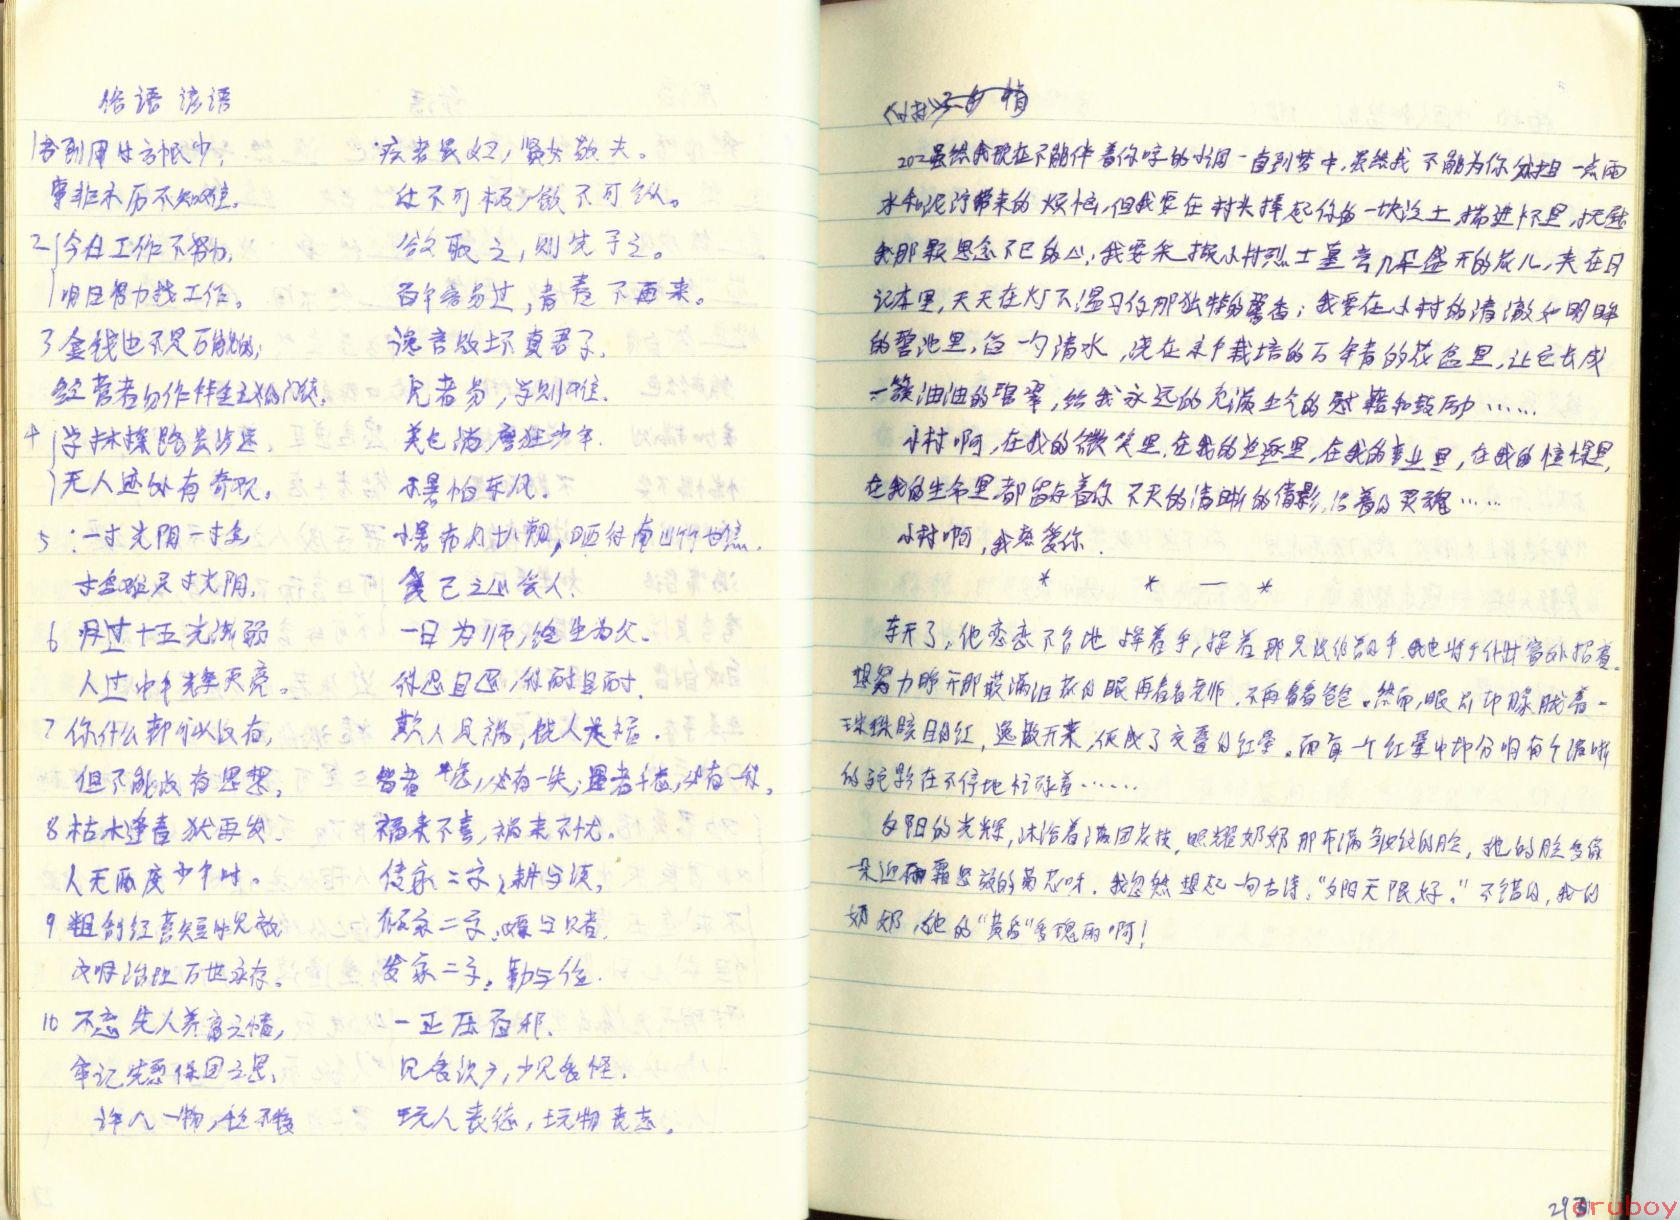 俗语 谚语
1书到用时方恨少,
事非亲历不知难.
2今日工作不努力,
明日努力找工作。
3金钱也不是万能的;
经营者勿作拜金主义的门徒.
4学林探路贵涉远,
无人迹处有奇观。
5:一寸光阴一寸金
寸金难买寸光阴.
6月过十五光渐弱
人过中年
7你什么都可以没有,
但不能没有思想.
8枯木逢春犹再发.
人无两度少年时。
9粗创经营短时见效
文明治理万世永存.
10不忘先人养育之情,
牢记先烈保国之恩,
许人一物,千金不移
痴者畏妇,贤女敬夫。
仕不可极,欲不可纵。
欲取之,则先予之。
百年容易过,青春不再来。
谗言败坏真君子,
冗者易,学则难.
美色消磨狂少年.
小暑怕东风.
小暑
一日为师,终生为父.
得忍且忍,得耐且耐.
欺人是祸,饶人是福.
智者千虑,必有一失;愚者千虑,必有一得.
福来不喜,祸来不忧.
传家二字:耕与读,
倾家二字,嫖与赌.
发家二字,勤与俭.
一正压百邪.
见多识广,少见多怪.
玩人丧德,玩物丧志.
《小村》
202虽然我现在不能伴着你哼的小调一直到梦中,虽然我不能为你分担一点雨
水和泥泞带来的烦恼,但我要在村头捧起你的一块泥土,揣进怀里,抚慰
我那颗思念不已的心;我要采撷小村烈士墓旁几朵盛开的花儿,夹在日
记本里,天天在灯下温习你那独特的馨香;我要在小村的清澈如明眸
的碧池里,舀一勺清水,浇在未中栽培的万年青的花盆里,让它长成
一簇油油的碧翠,给我永远的充满生气的慰藉和鼓励……
小村啊,在我的微笑里,在我的追逐里,在我的事业里,在我的憧憬里,
在我的生命里都留存着你不灭的清晰的倩影,活着的灵魂……
小村啊,我恋爱你.
* * — *
车开了,他恋恋不舍地挥着手,挥着那只
想努力睁开那被满泪花的眼再看看老师,再看看爸爸。然而,眼前却朦胧着一
珠珠眩目的红,逸散开来,变成了交叠的红晕。而每一个红晕中却分明有个
的驼影在不停地忙碌着……
夕阳的光辉,沐浴着满园花枝,照耀奶奶那布满皱纹的脸,她的脸多像
一朵迎霜怒放的菊花呀.我忽然想起一句古诗:"夕阳无限好."不错的,我的
奶奶,她的"黄昏"多瑰丽啊!
293
druboy